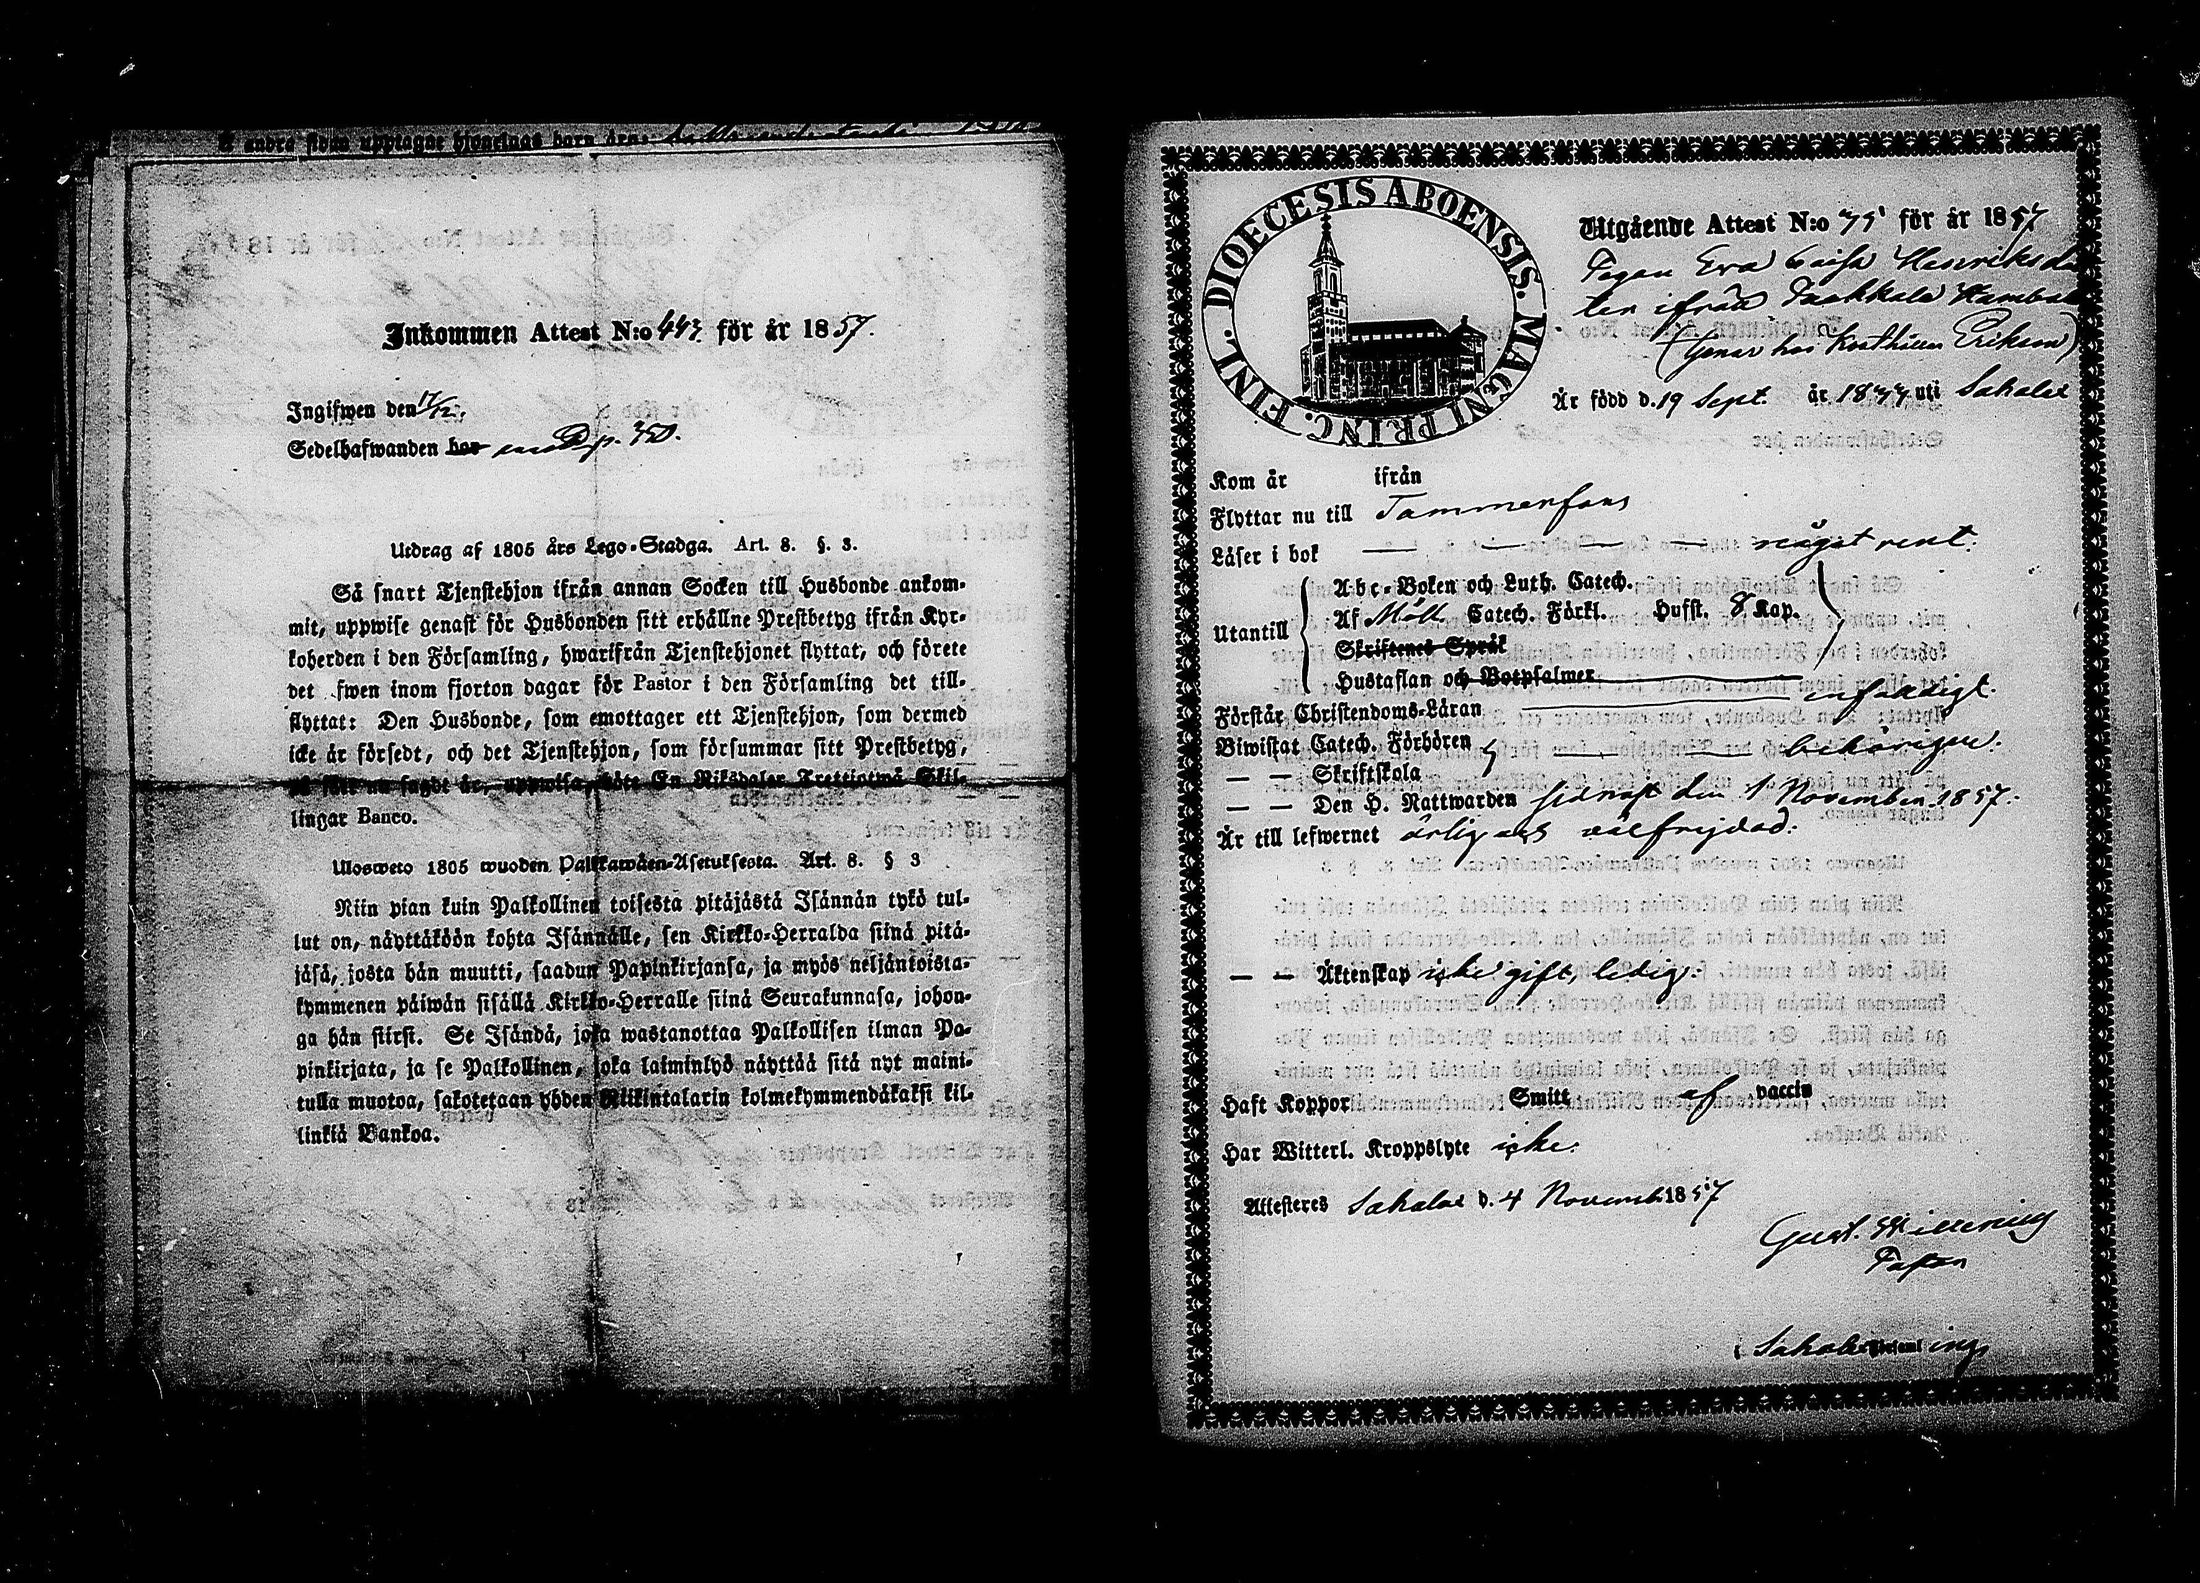 å andra sidan upptagne hjonelnas barn äro:
Inkommen Attest N:o 443 för år 1857.
Ingifwen den 17/12.
Sedelhafwanden har p. 750.
Utdrag af 1805 års Lego-Stadga. Art. 8. §. 3.
Så snart Tjenstehjon ifrån annan Socken till Husbonde ankom-
mit, uppwise genast för Husbonden sitt erhållne Prestbetyg ifrån Kyr-
koherden i den Församling, hwarifrån Tjenstehjonet flyttat, och förete
det fwen inom fjorton dagar för Pastor i den Församling det till-
flyttat: Den Husbonde, som emottager ett Tjenstehjon, som dermed
icke är försedt, och det Tjenstehjon, som försummar sitt Prestbetyg,
på sätt nu sagdt är, uppwisa, böte En Riksdaler Trettiotwå Skil-
lingar Banco.
Ulosweto 1805 wuoden Palkkawäen-Asetuksesta. Art. 8. § 3
Niin pian kuin Palkollinen toisesta pitäjästä Isännän tykö tul-
lut on, näyttäköön kohta Isännälle, sen Kirkko-Herralda siinä pitä-
jäsä, josta hän muutti, saadun Papinkirjansa, ja myös neljäntoista-
kymmenen päiwän sisällä Kirkko-Herralle siinä Seurakunnasa, johon-
ga hän siirsi. Se Isändä, joka wastanottaa Palkollisen ilman Pa-
pinkirjata, ja se Palkollinen, joka laiminlyö näyttää sitä nyt maini-
tulla muotoa, sakotetaan yhden Riikintalarin kolmekymmendäkaksi kil-
linkiä Bankoa.
FINL. DIOECESIS ABOENSIS. MAGNI PRINC.
Utgående Attest N:o 75 för år 1857
Pigan Eva Caisa Henriksdot
ter ifrån Hambula
(tjenar hos Erikson)
Är född d. 19 Sept. år 1844 uti Sahalax
Kom år ifrån
Flyttar nu till Tammerfors
Läser i bok — — — — något rent.
Utantill
Abc-Boken och Luth. Catech.
Af Möll. Catech. Förkl. Hufst. 8 Kap.
Skriftenes Språk
Hustaflan och Botpsalmer
Förstår Christendoms-Läran enfaldigt.
Biwistat Catech. Förhören — — — behörigen.
— — Skriftskola
— — Den H. Nattwarden sednast den 1 November 1857.
Är till lefwernet ärlig och välfrejdad.
— — Äktenskap icke gift, ledig.
Haft Koppor Smitt af vaccin
Har Witterl. Kroppslyte icke.
Attesteres Sahalax d. 4 Novemb. 1857
Gust. Willenius
Pastor
i Sahalax Församl ing